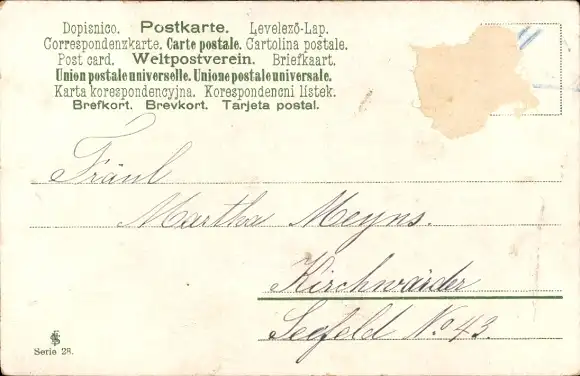 Dopisnico. Postkarte. Levelező-Lap.
Correspondenzkarte. Carte postale. Cartolina postale.
Post card. Weltpostverein. Briefkaart.
Union postale universelle. Unione postale universale.
Karta korespondencyjna. Korespondencni listek.
Brefkort. Brevkort. Tarjeta postal.
Fräul
Martha Meyns.
Kirchwärder
Seefeld No 43.
Serie 28.